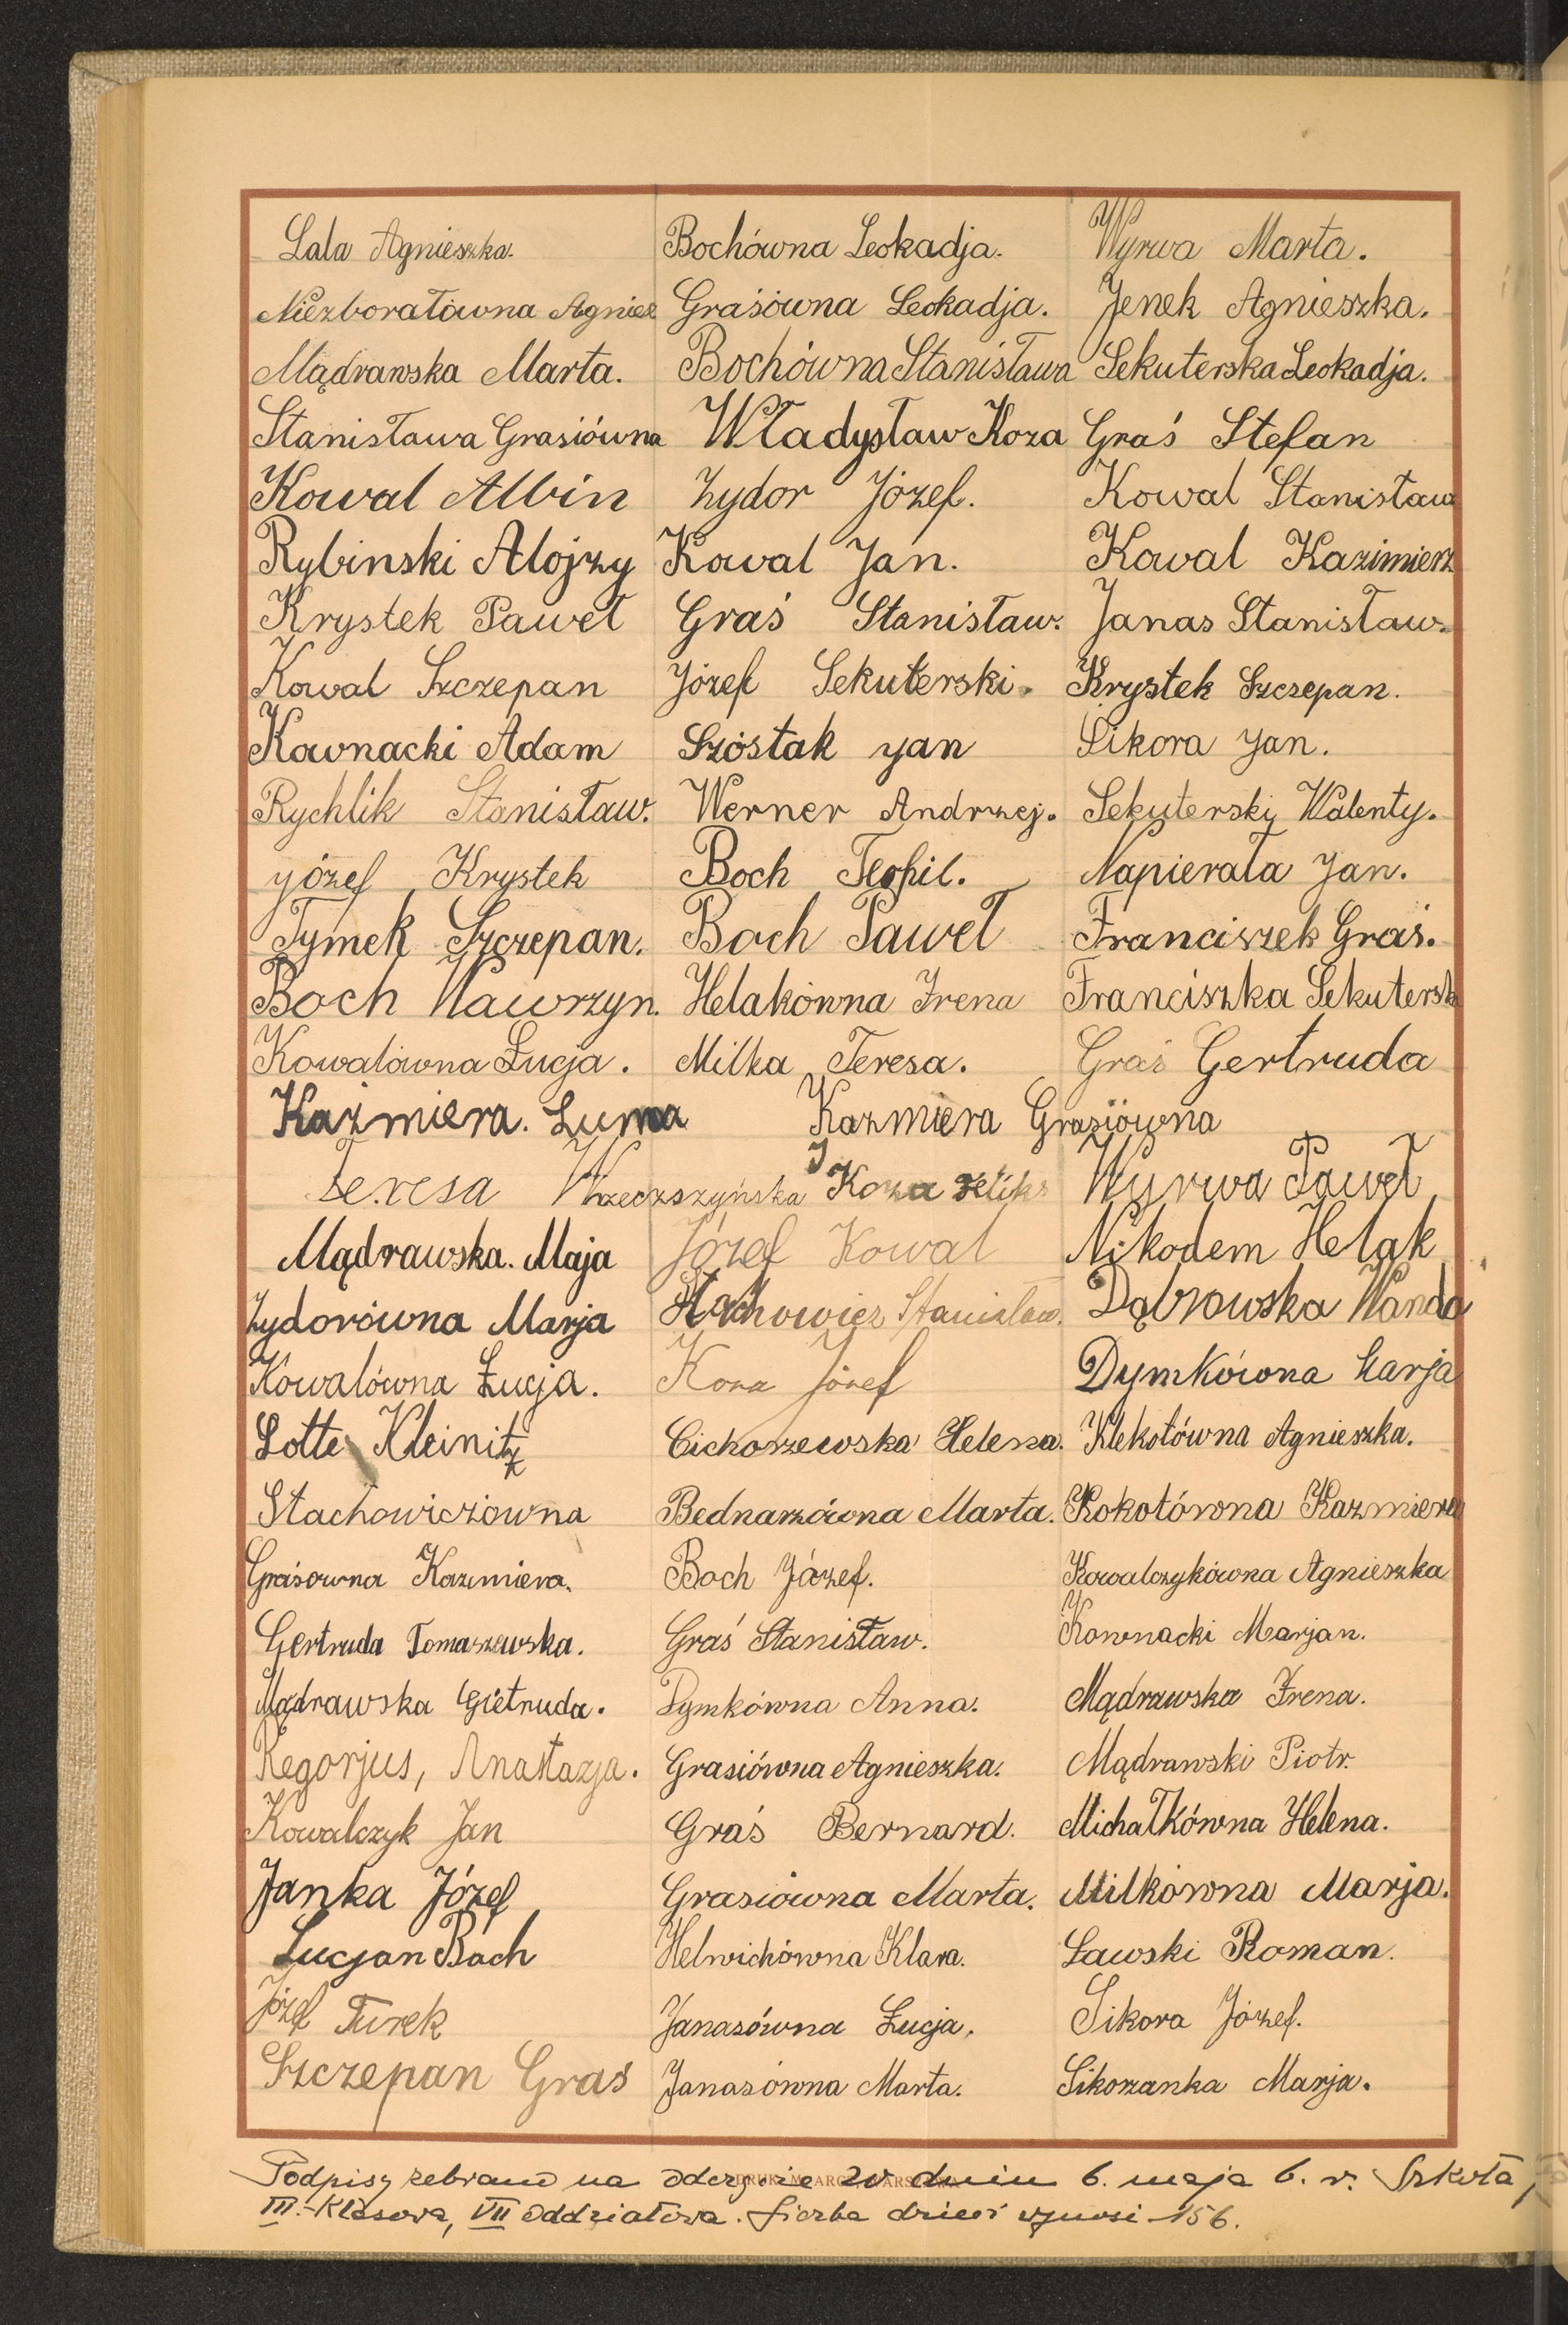 Lala Agnieszka. Bochówna Leokadja. Wyrwa Marta.
Niezborałówna Agniesz Grasówna Leokadja. Jenek Agnieszka.
Mądrawska Marta. Bochówna Stanisława Sekuterska Leokadja.
Stanisława Grasiówna Władysław Koza Graś Stefan
Kowal Albin Zydor Józef. Kowal Stanisław
Rybinski Alojzy Kowal Jan. Kowal Kazimierz
Krystek Paweł Graś Stanisław. Janas Stanisław.
Kowal Szczepan Józef Sekuterski. Krystek Szczepan.
Kownacki Adam Szóstak Jan Sikora Jan.
Rychlik Stanisław. Werner Andrzej. Sekuterski Walenty.
Józef Krystek Boch Teofil. Napierała Jan.
Tymek Szczepan. Boch Paweł Franciszek Graś.
Boch Wawrzyn. Helakówna Irena Franciszka Sekutersk
Kowalówna Łucja. Milka Teresa. Graś Gertruda
Kaźmiera. Luma Kazmiera Grasiówna
Teresa Wrzeczszyńska Koza Feliks Wyrwa Paweł
Mądrawska. Maja Józef Kowal Nikodem Helak
Zydorówna Marja Stachowicz Stanisław. Dąbrowska Wanda
Kowalówna Łucja. Koza Józef Dymkówna Marja
Lotte Kleinitz Cichorzewska Helena. Klekotówna Agnieszka.
Stachowiczówna Bednarzówna Marta. Kokotówna Kazmiera
Graśowna Kazimiera. Boch Józef. Kowalczykówna Agnieszka
Gertruda Tomaszewska. Graś Stanisław. Kownacki Marjan.
Mądrawska Gietruda. Dymkówna Anna. Mądrawska Irena.
Regorjus, Anastazja. Grasiówna Agnieszka. Mądrawski Piotr.
Kowalczyk Jan Graś Bernard. Michałkówna Helena.
Janka Józef Grasiówna Marta. Milkówna Marja.
Lucjan Boch Helwichówna Klara. Ławski Roman.
Józef Turek Janasówna Łucja. Sikora Józef.
Szczepan Gras Janasówna Marta. Sikorzanka Marja.
Podpisy zebrano na odczycie w dniu 6. maja b. r. Szkoła,
III. Klasowa, VII oddziałowa. Liczba dzieci wynosi 156.